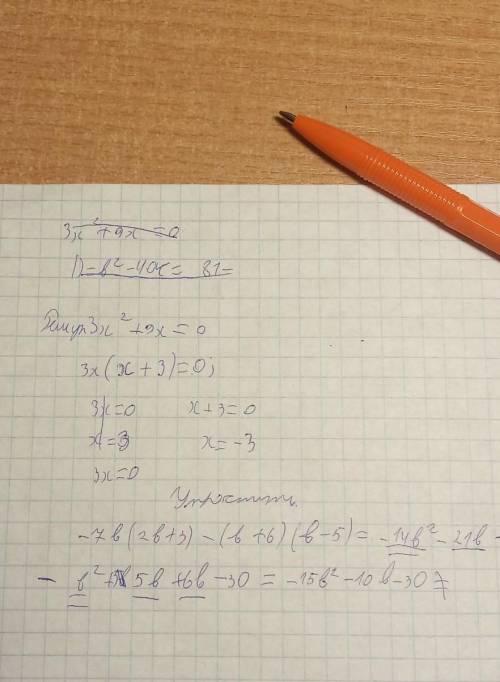 3x² + 9x = 0
D = b² - 4ac = 81 =
3x² + 9x = 0
3x(x + 3) = 0;
3x = 0 x + 3 = 0
x = 3 x = -3
3x = 0
Упростить.
-7b(2b+3) - (b+6)(b-5) = -14b² - 21b -
- b² + 5b + 6b - 30 = -15b² - 10b - 30 =